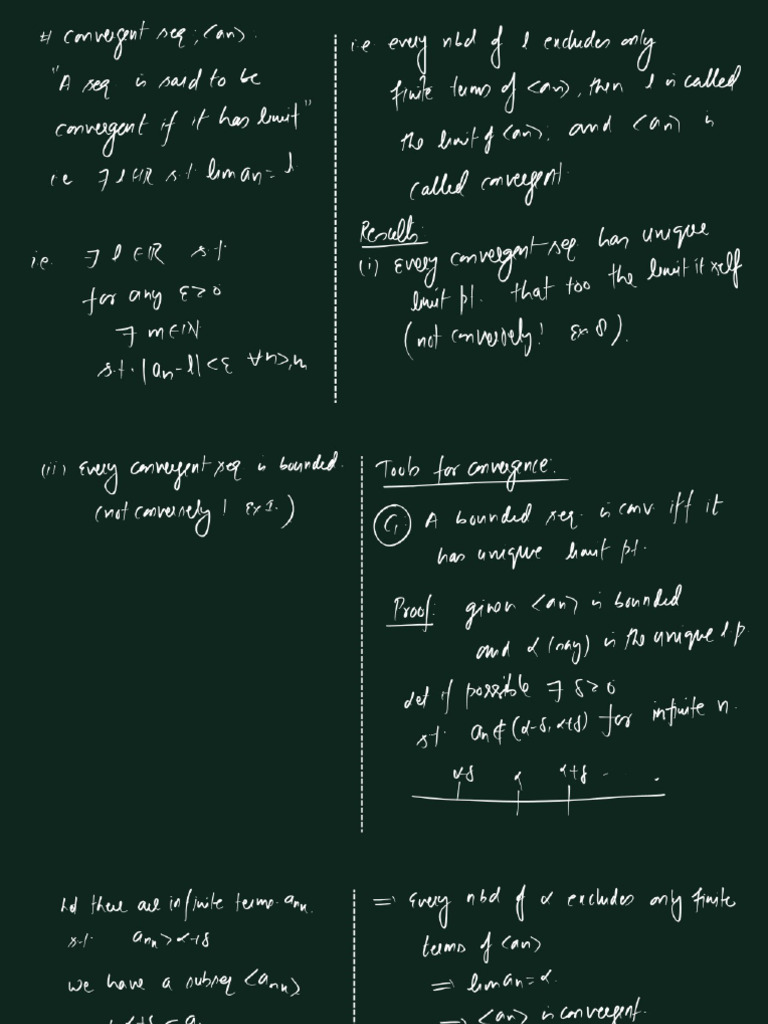 # Convergent seq; <an>.
"A seq is said to be
convergent if it has limit"
ie ∃ l∈IR s.t. liman = l
i.e. ∃ l ∈IR s.t.
for any ε>0
∃ m∈IN
s.t. |an-l|<ε ∀n≥m
i.e every nbd of l excludes only
finite terms of <an>, then l is called
the limit of <an>; and <an> is
called convergent.
Results:
(i) Every convergent seq has unique
limit pt. that too the limit itself
(not conversely! Ex 8).
(ii) Every convergent seq is bounded.
(not conversely! Ex 1.)
Tools for convergence:
C1 A bounded seq. is conv. iff it
has unique limit pt.
Proof: given <an> is bounded
and α (say) is the unique l.p.
Let if possible ∃ δ>0
s.t. an∉(α-δ, α+δ) for infinite n.
α-δ α α+δ
Let there are infinite terms ank
s.t. ank > α+δ
we have a subseq <ank>
α+δ < a
⇒ Every nbd of α excludes only finite
terms of <an>
⇒ liman = α.
⇒ <an> is convergent.